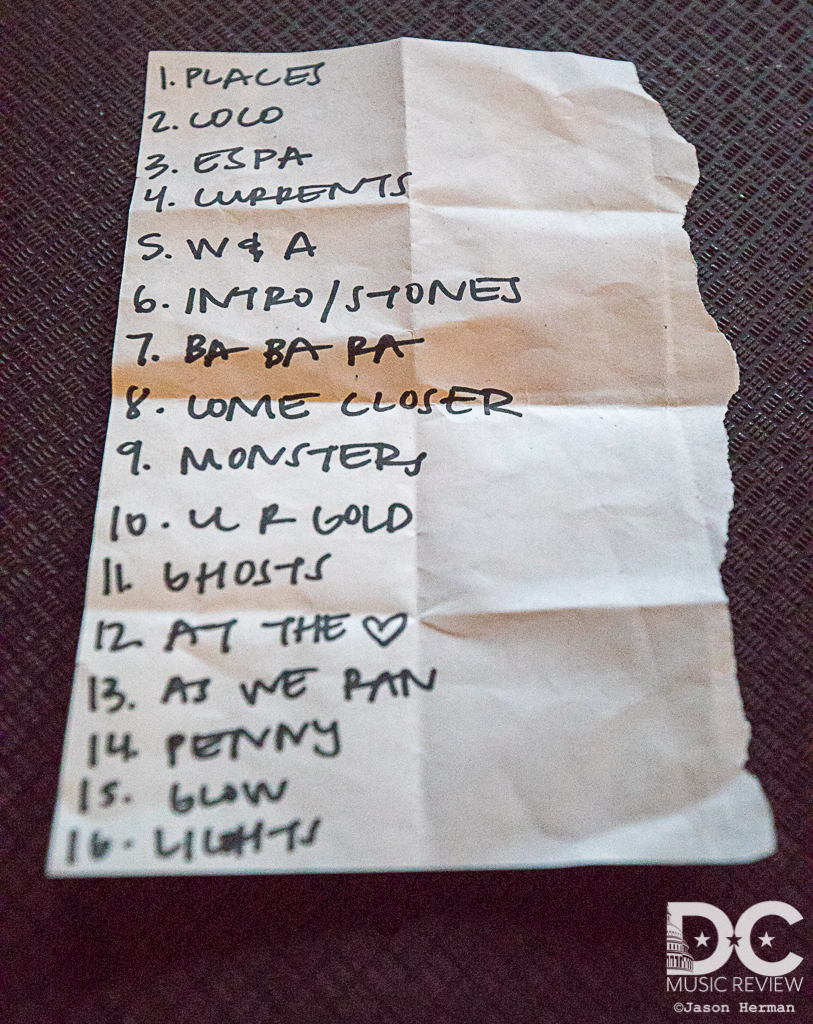 1. PLACES
2. COCO
3. ESPA
4. CURRENTS
5. W & A
6. INTRO/STONES
7. BA BA RA
8. COME CLOSER
9. MONSTERS
10. U R GOLD
11. GHOSTS
12. AT THE ♡
13. AS WE RAN
14. PENNY
15. GLOW
16. LIGHTS
DC
MUSIC REVIEW
©Jason Herman